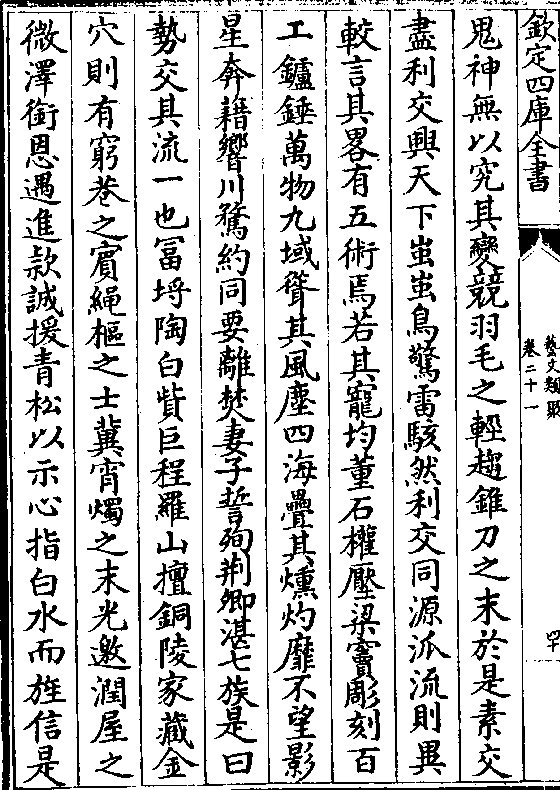 欽定四庫全書
藝文類聚
卷二十一
鬼神無以究其變競羽毛之輕趨錐刀之末於是素交
盡利交興天下蚩蚩鳥驚雷駭然利交同源派流則異
較言其畧有五術焉若其寵均董石權壓梁竇彫刻百
工鑪錘萬物九域聳其風塵四海疊其燻灼靡不望影
星奔藉響川騖約同要離焚妻子誓殉荆卿湛七族是曰
勢交其流一也冨埒陶白貲巨程羅山擅銅陵家藏金
穴則有窮巷之賔繩樞之士冀宵燭之末光邀潤屋之
微澤銜恩遇進款誠援青松以示心指白水而旌信是